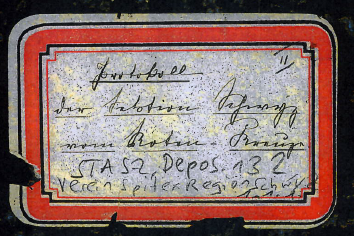 II
Protokoll
der Sektion Schwyz
vom Roten-Kreuze
STASZ, Depos. 132
Verein Spitex Region Schwyz